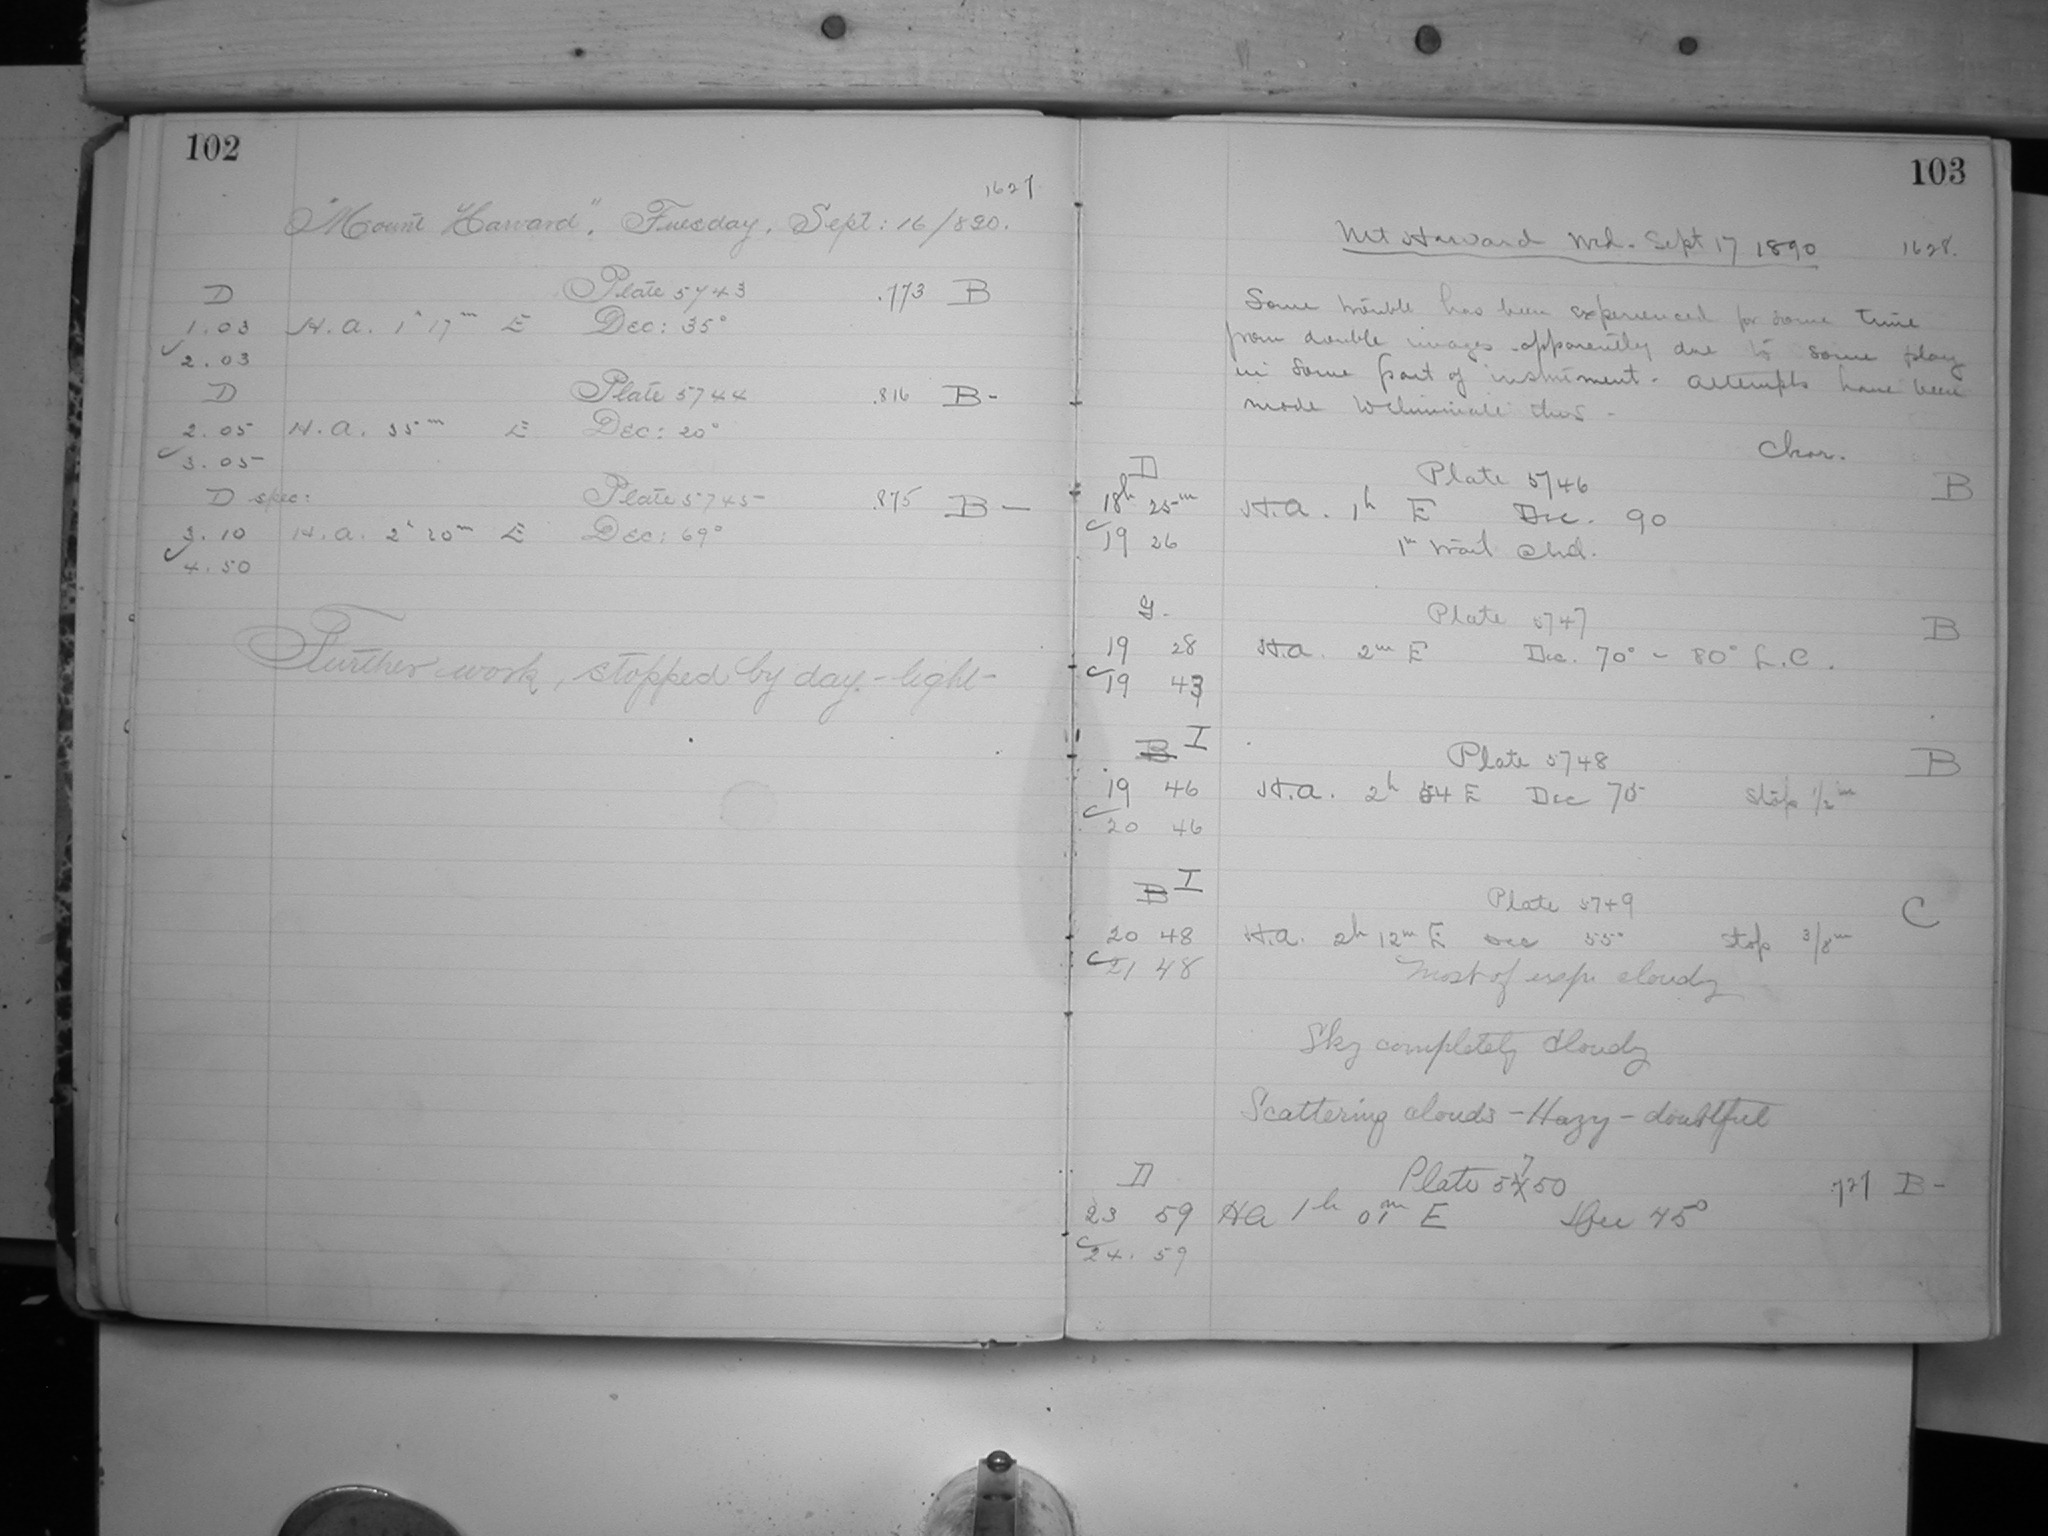 102
1627
"Mount "Harvard", Tuesday, Sept: 16/890.
D Plate 5743 .773 B
1.03 H.A. 1h 17m E Dec: 35°
2.03
D Plate 5744 .816 B-
2.05 H.A. 35m E Dec: 20°
3.05
D spec: Plate 5745 .875 B-
3.10 H.A. 2h 20m E Dec: 69°
4.50
Further work, stopped by day-light-
103
Mt Harvard Wed. Sept 17 1890 1628.
Some trouble has been experienced for some time
from double images apparently due to some play
in some part of instrument. Attempts have been
made to eliminate this.
Char.
D Plate 5746 B
18h 25m H.A. 1h E Dec. 90
19 26 1m trail @ end.
Plate 5747 B
19 28 H.A. 2m E Dec. 70° - 80° L.C.
19 43
B I Plate 5748 B
19 46 H.A. 2h 54 E Dec 75 Stop 1/2 in
20 46
B I Plate 5749 C
20 48 H.A. 2h 12m E Dec 55° Stop 3/8 in
21 48 Most of exp. cloudy
Sky completely cloudy
Scattering clouds - Hazy - doubtful
D Plate 5750 .727 B-
23 59 HA 1h 01m E Dec 45°
24. 59